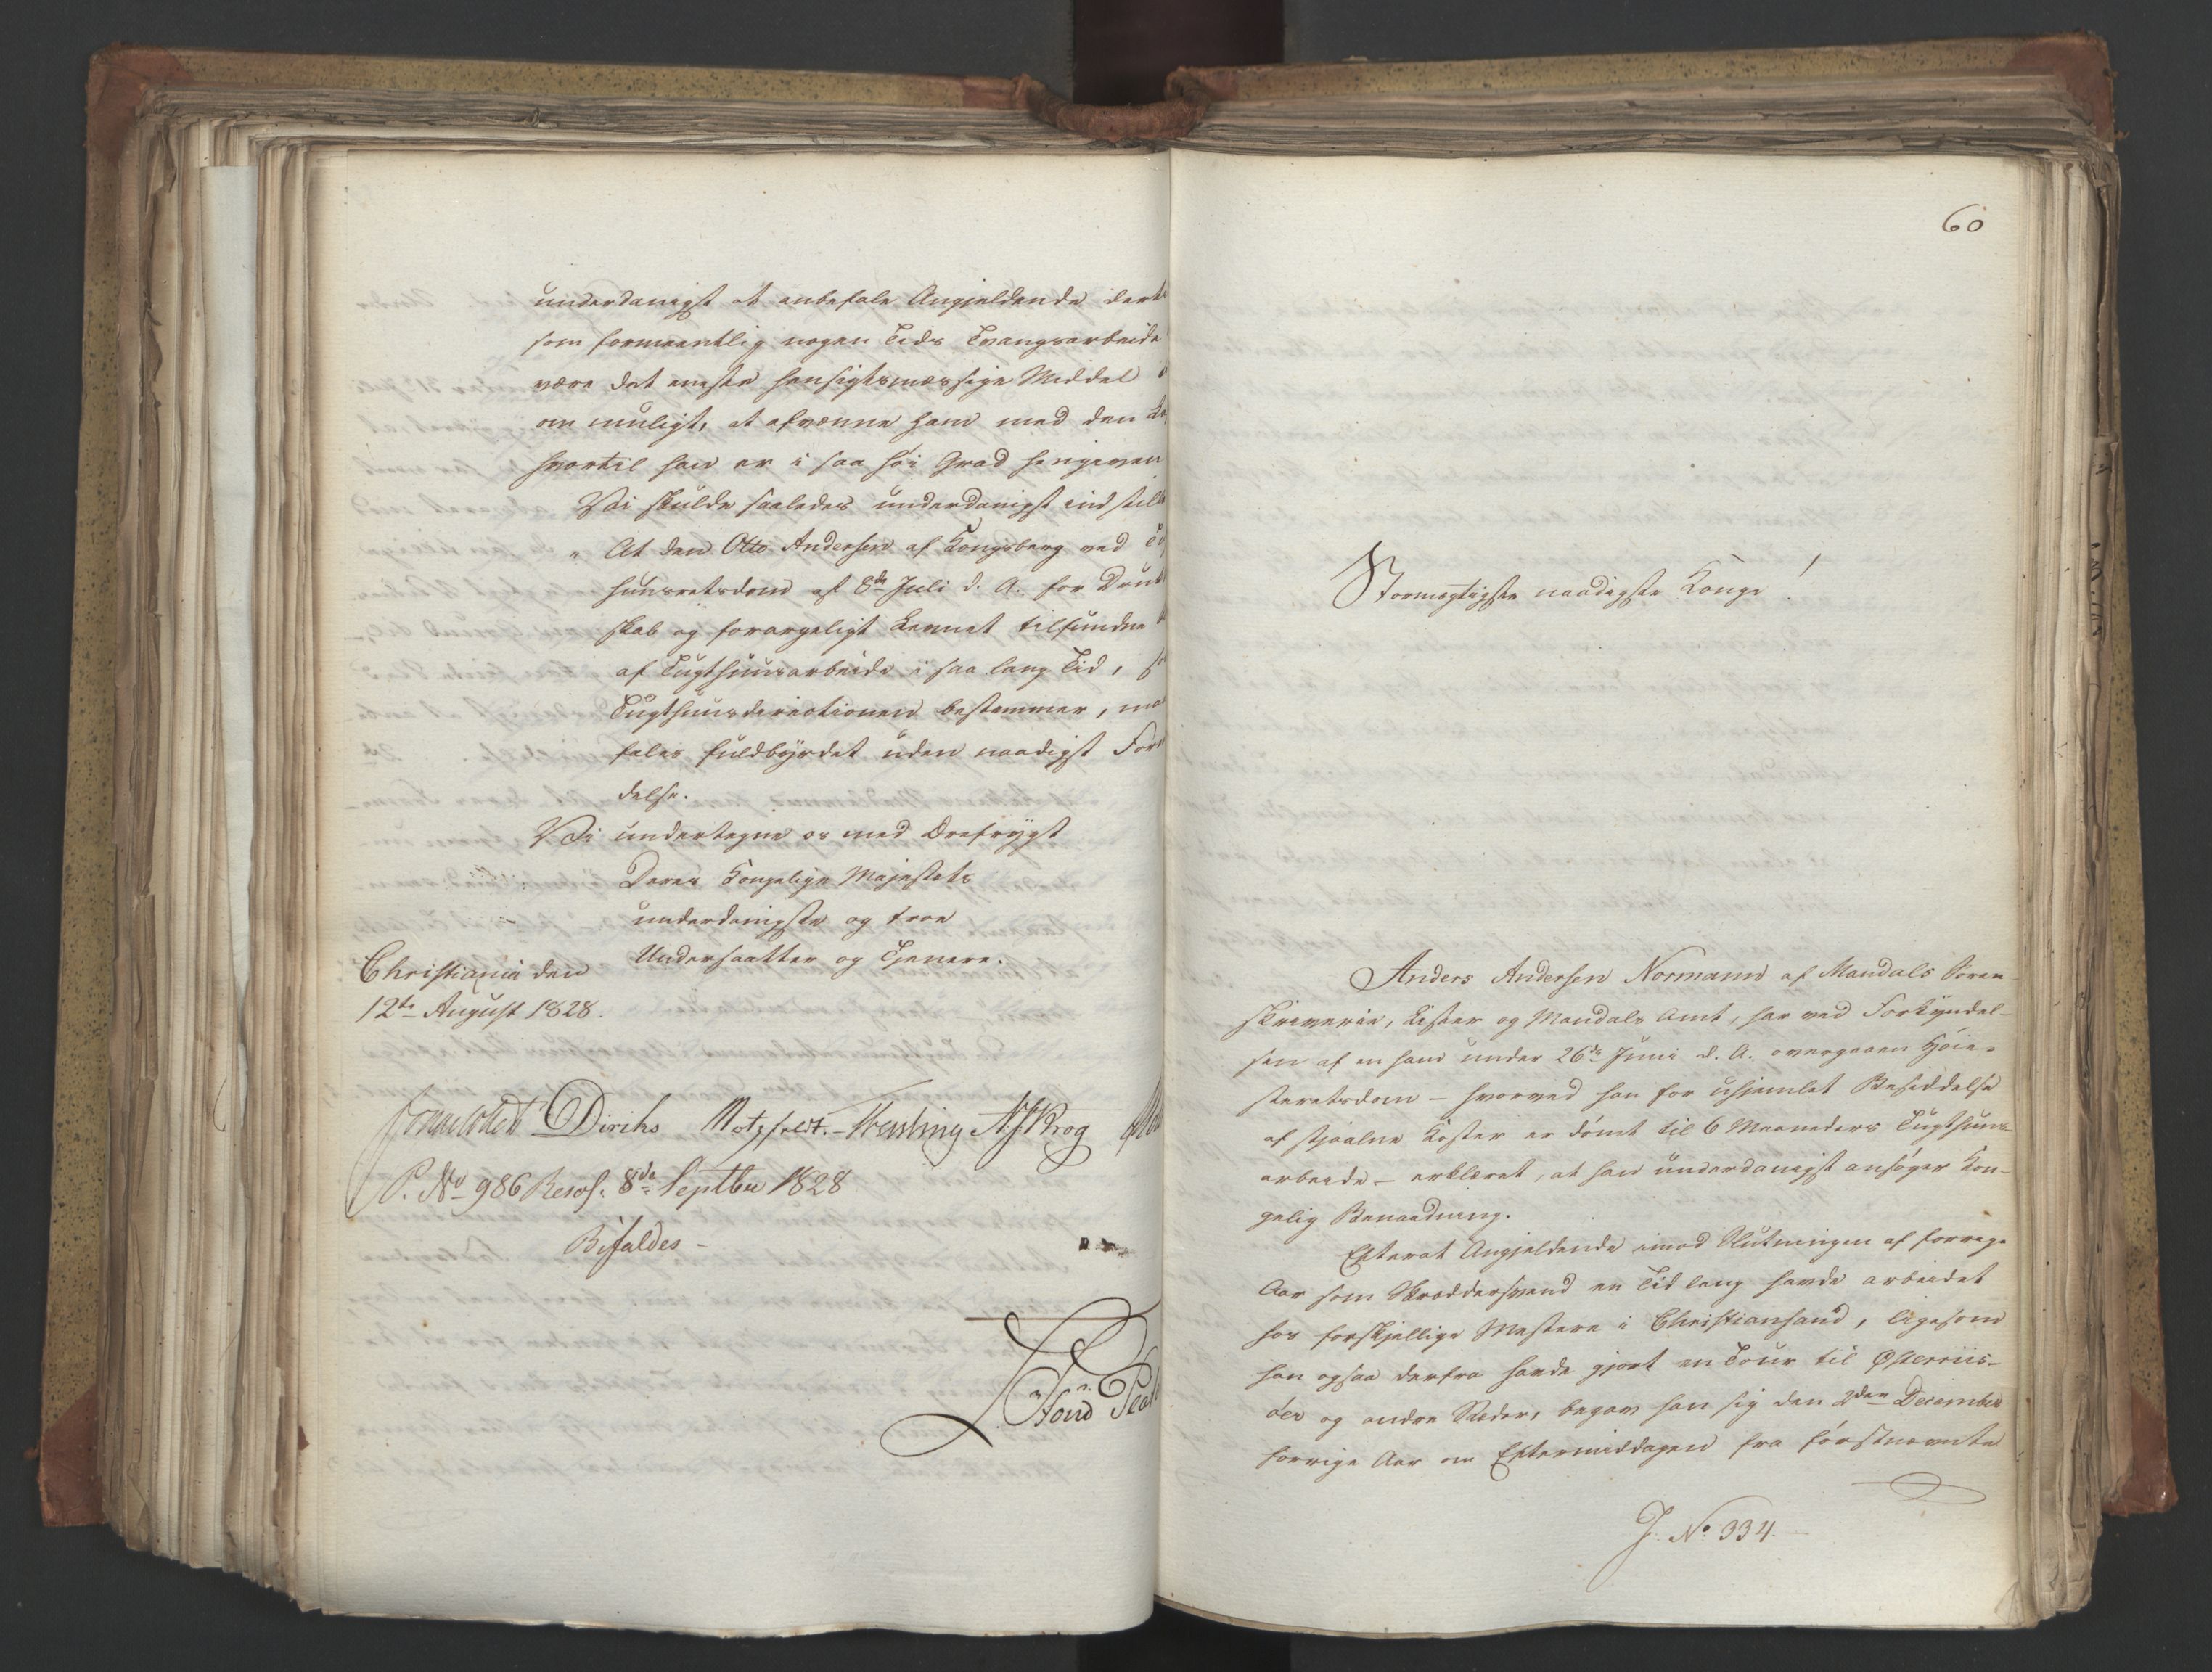 underdanigst at anbefale Angjeldende dert
som formeentlig nogen Tids Tvangsarbeide
være det eneste hensigtsmæssige Middel
om muligt, at afvænne ham med den
hvortil han er i saa høi Grad hengiven
Vi skulde saaledes underdanigst indstill
" At den Otto Andersen af Kongsberg ved
huusretsdom af 8de Juli d. A. for Druk
skab og forargeligt Levnet tilfundne
af Tugthuusarbeide i saa lang Tid,
Tugthuusdirectionen bestemmer, maa
fales fuldbyrdet uden naadigst For
delse.
Vi undertegne os med Ærefrygt
Deres Kongelige Majestets
underdanigste og troe
Undersaatter og Tjenere.
Christiania den
12te August 1828.
Sommerhielm Diriks Motzfeldt. Treschow NJKrog
P. No 986 Resol. 8de Septbr 1828
Bifaldes -
60
Stormægtigste naadigste Konge!
Anders Andersen Normann af Mandals Soren-
skriverie, Lister og Mandals Amt, har ved Forkyndel-
sen af en ham under 26de Juni d. A. overgaaen Høie-
steretsdom - hvorved han for uhjemlet Besiddelse
af stjaalne Koster er dømt til 6 Maaneders Tugthuus-
arbeide - erklæret, at han underdanigst ansøger Kon-
gelig Benaadning.
Efterat Angjeldende imod Slutningen af forrige
Aar som Skræddersvend en Tid lang havde arbeidet
hos forskjellige Mestere i Christiansand, ligesom
han ogsaa derfra havde gjort en Tour til Østerriis-
øer og andre Steder, begav han sig den 2den December
forrige Aar om Eftermiddagen fra førstnævnte
J. No 334.